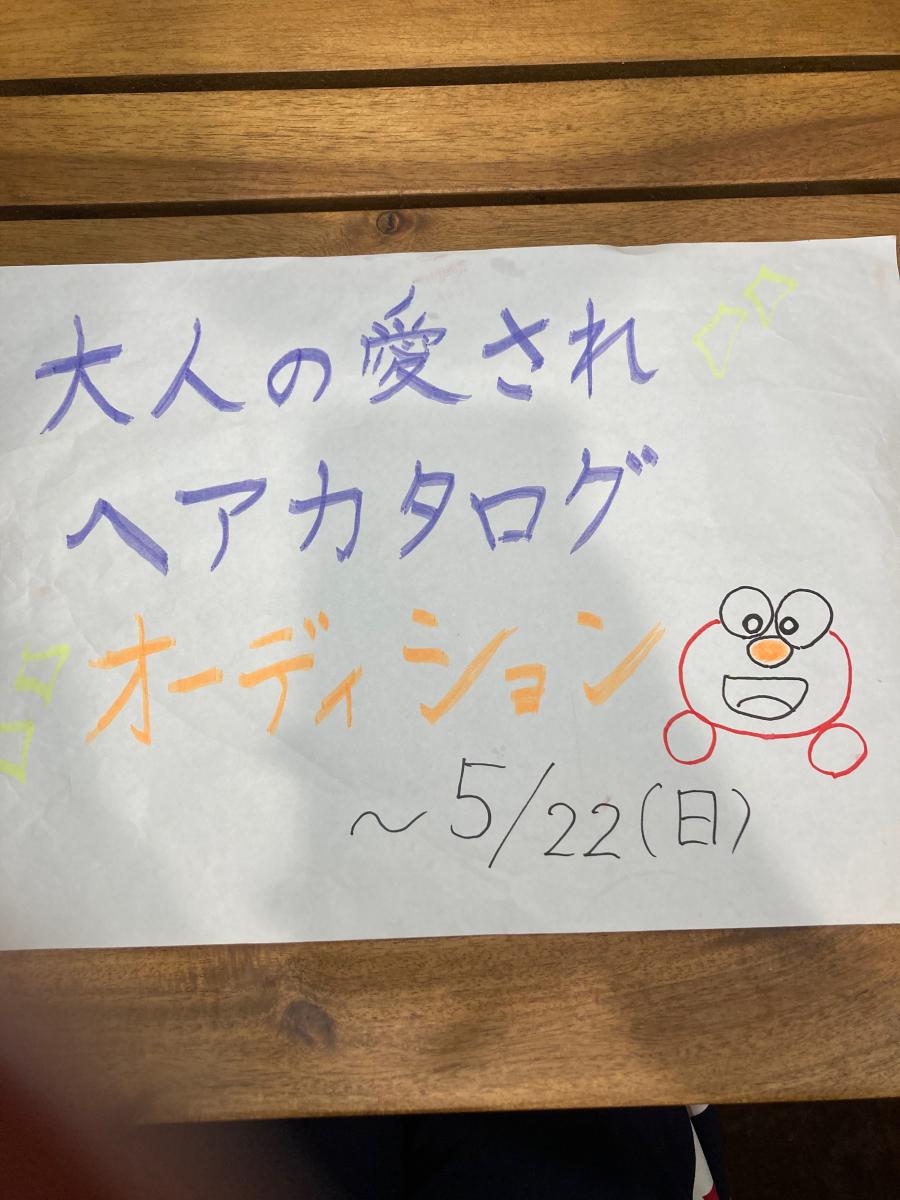 大人の愛され
ヘアカタログ
オーディション
～5/22(日)